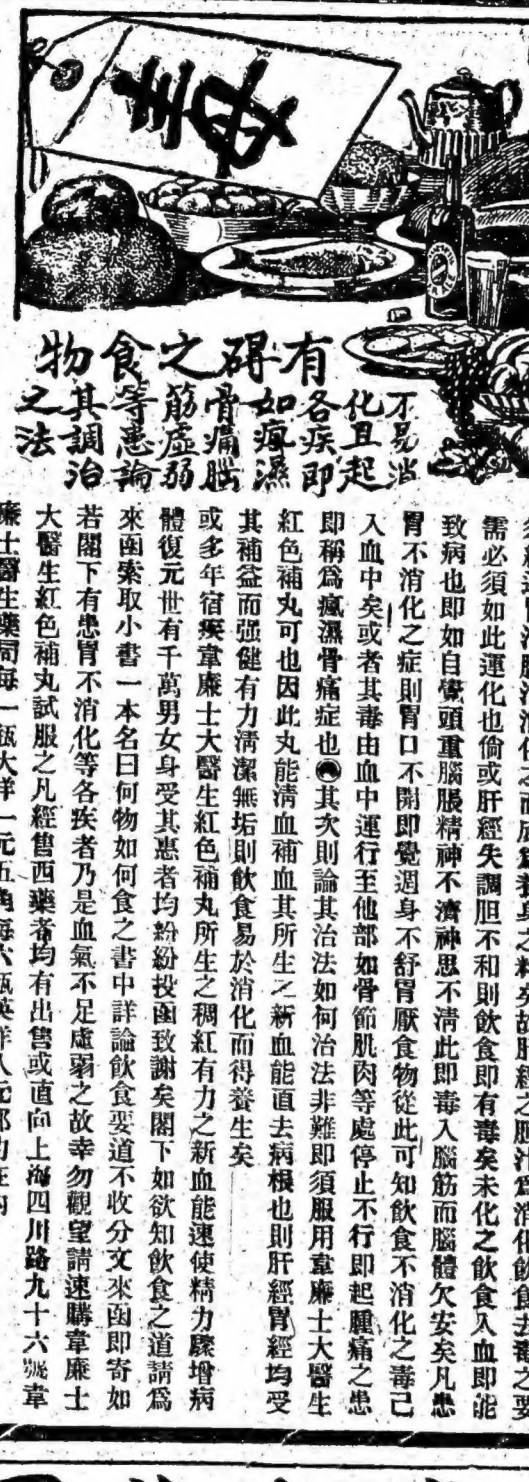 毒
有碍之食物
不易消
化且起
各疾即
如瘋濕
骨痛腦
筋虛弱
等患論
其調治
之法
需必須如此運化也倘或肝經失調胆不和則飲食即有毒矣未化之飲食入血即能
致病也即如自覺頭重腦脹精神不濟神思不清此即毒入腦筋而腦體欠安矣凡患
胃不消化之症則胃口不開即覺週身不舒胃厭食物從此可知飲食不消化之毒己
入血中矣或者其毒由血中運行至他部如骨節肌肉等處停止不行即起腫痛之患
即稱爲瘋濕骨痛症也其次則論其治法如何治法非難即須服用韋廉士大醫生
紅色補丸可也因此丸能清血補血其所生之新血能直去病根也則肝經胃經均受
其補益而强健有力清潔無垢則飲食易於消化而得養生矣
或多年宿疾韋廉士大醫生紅色補丸所生之稠紅有力之新血能速使精力驟增病
體復元世有千萬男女身受其惠者均紛紛投函致謝矣閣下如欲知飲食之道請爲
來函索取小書一本名曰何物如何食之書中詳論飲食要道不收分文來函即寄如
若閣下有患胃不消化等各疾者乃是血氣不足虛弱之故幸勿觀望請速購韋廉士
大醫生紅色補丸試服之凡經售西藥者均有出售或直向上海四川路九十六號韋
廉士醫生藥局每一瓶大洋一元五角每六瓶英洋八元